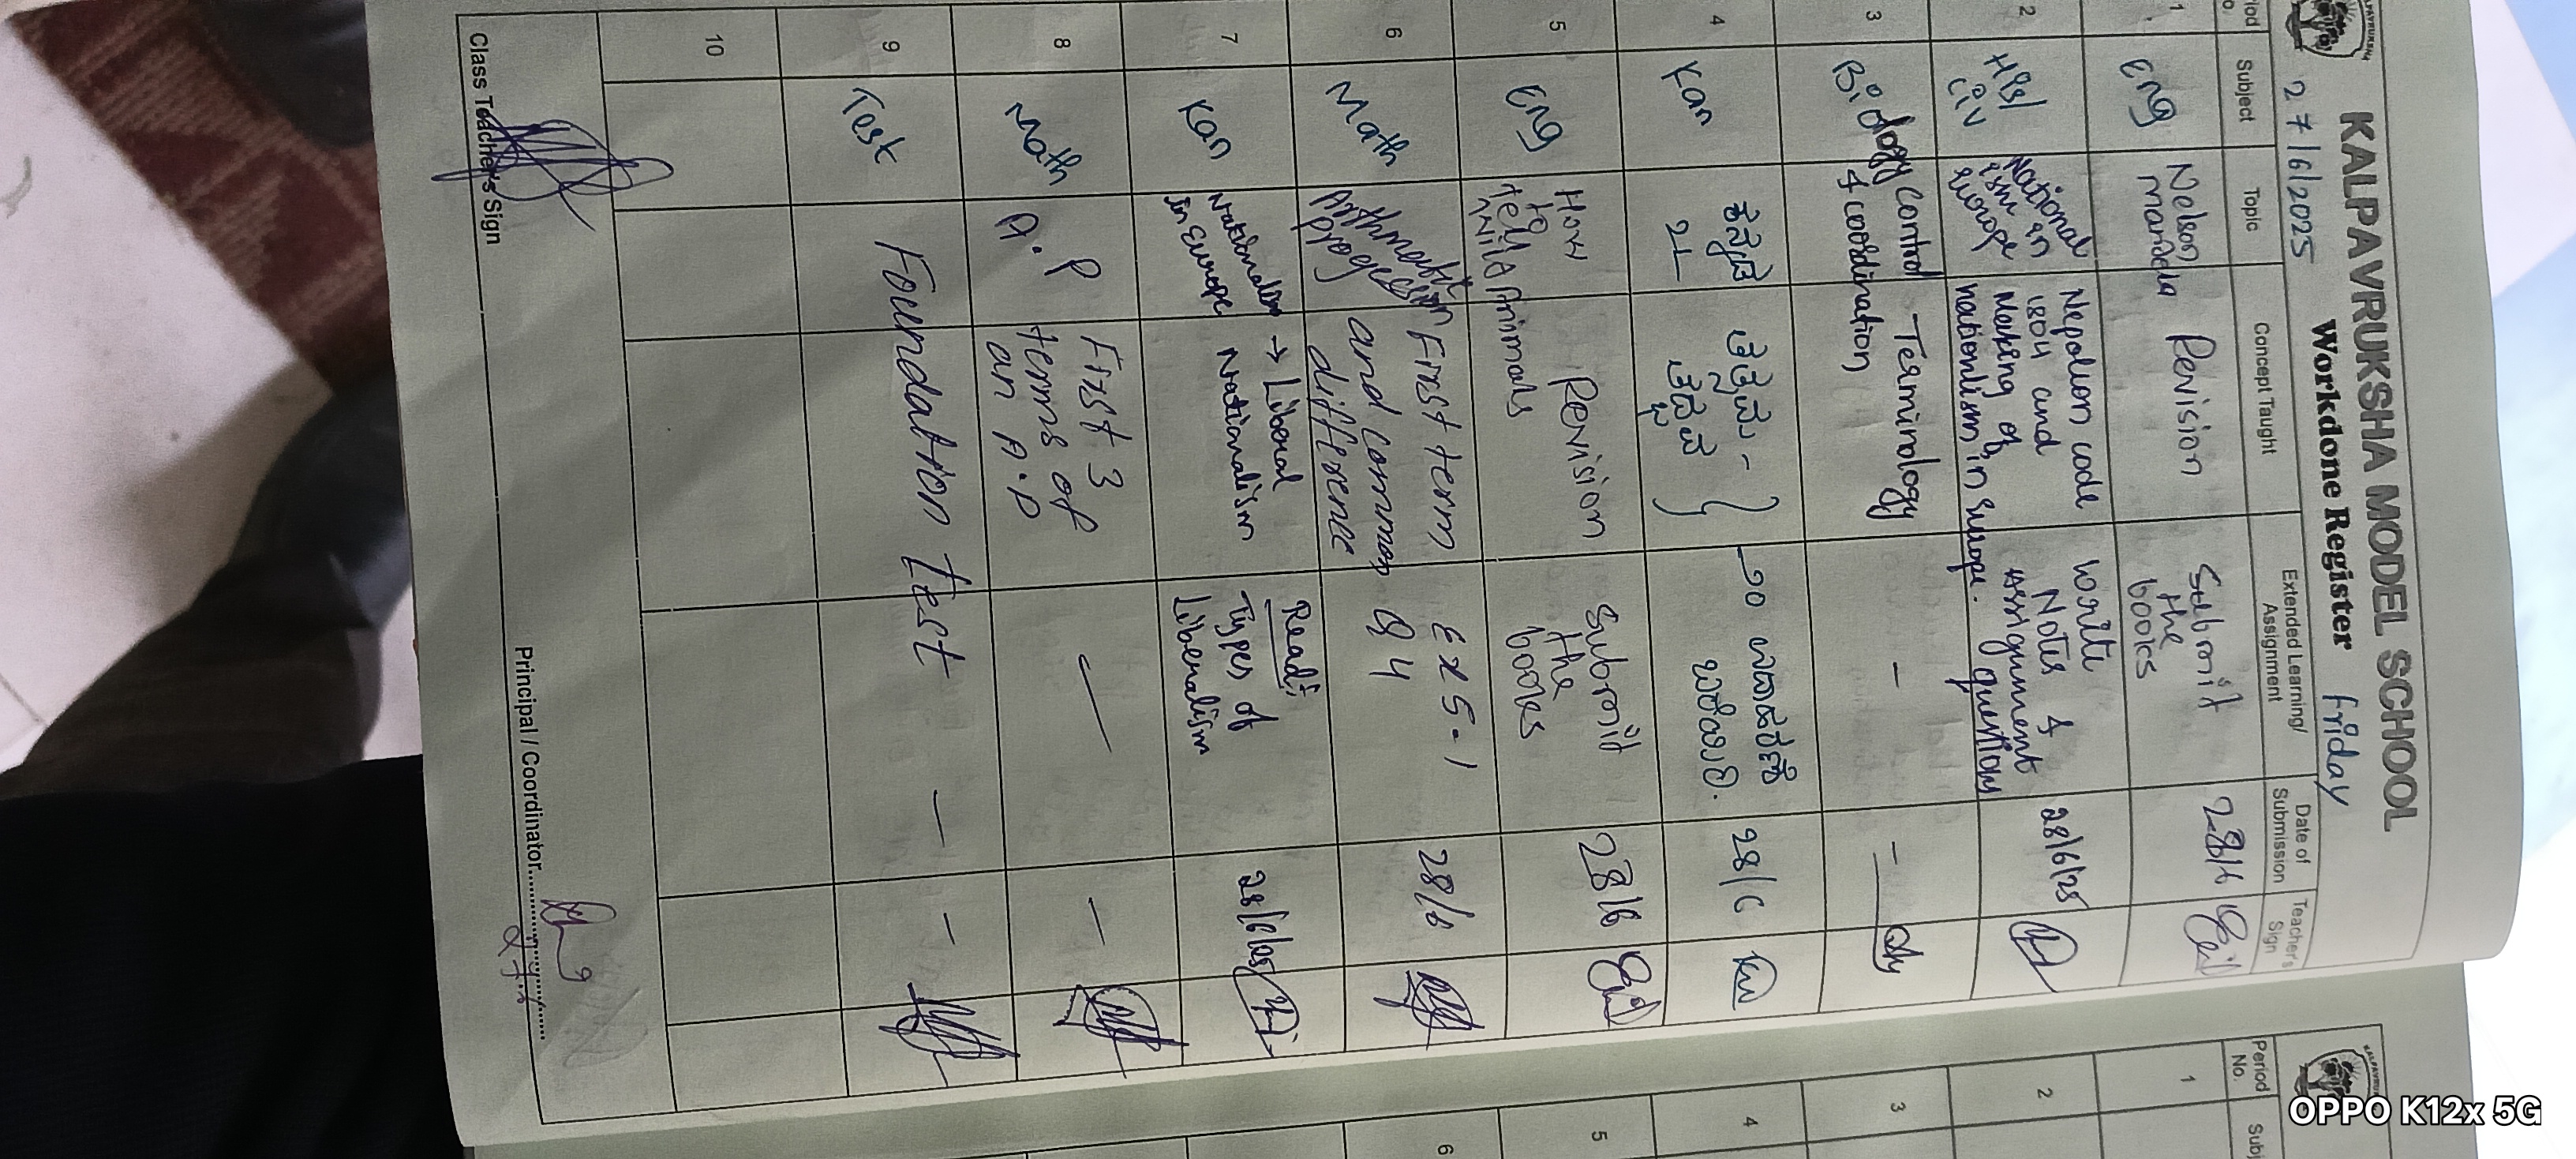 KALPAVRUKSHA MODEL SCHOOL
Workdone Register
27/6/2025
friday
Subject
Topic
Concept Taught
Extended Learning/
Assignment
Date of
Submission
Teacher's
Sign
1
Eng
Nelson
mandela
Revision
Submit
the
books
28/6
2
His/
civ
National
ism in
europe
Nepolion code
1804 and
Making of
nationlism in europe.
Write
Notes &
assignment
question
28/6/25
3
Biology
Control
& coordination
Terminology
-
-
4
Kan
28/6
5
Eng
How
to
tell
wild
Animals
Revision
Submit
the
books
28/6
6
Math
First term
and common
difference
Ex 5-1
Q4
28/6
7
Kan
Nationalism
in Europe
→ Liberal
Nationalism
Read:
Types of
Liberalism
28/6/25
8
Math
A.P
First 3
terms of
an A.P
—
—
9
Test
Foundation test
—
—
10
Class Teacher's Sign
Principal / Coordinator
Period
No.
1
2
3
4
5
6
OPPO K12x 5G